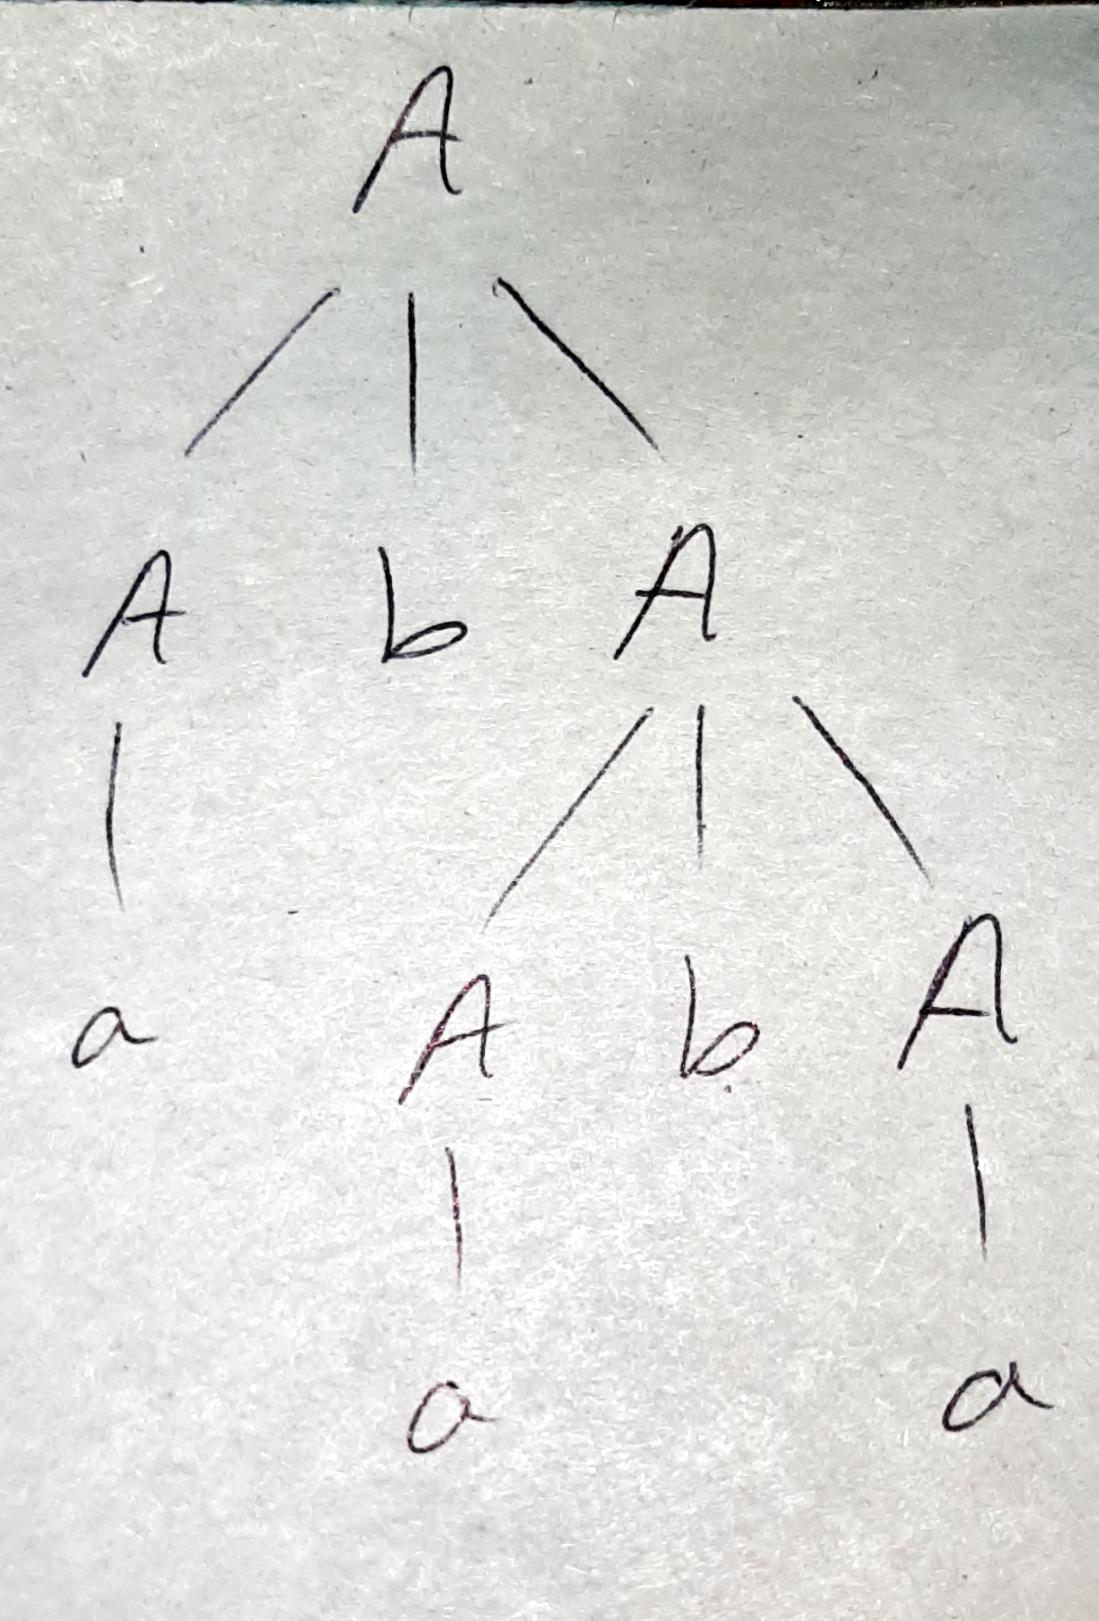 A
A b A
a A b A
a a